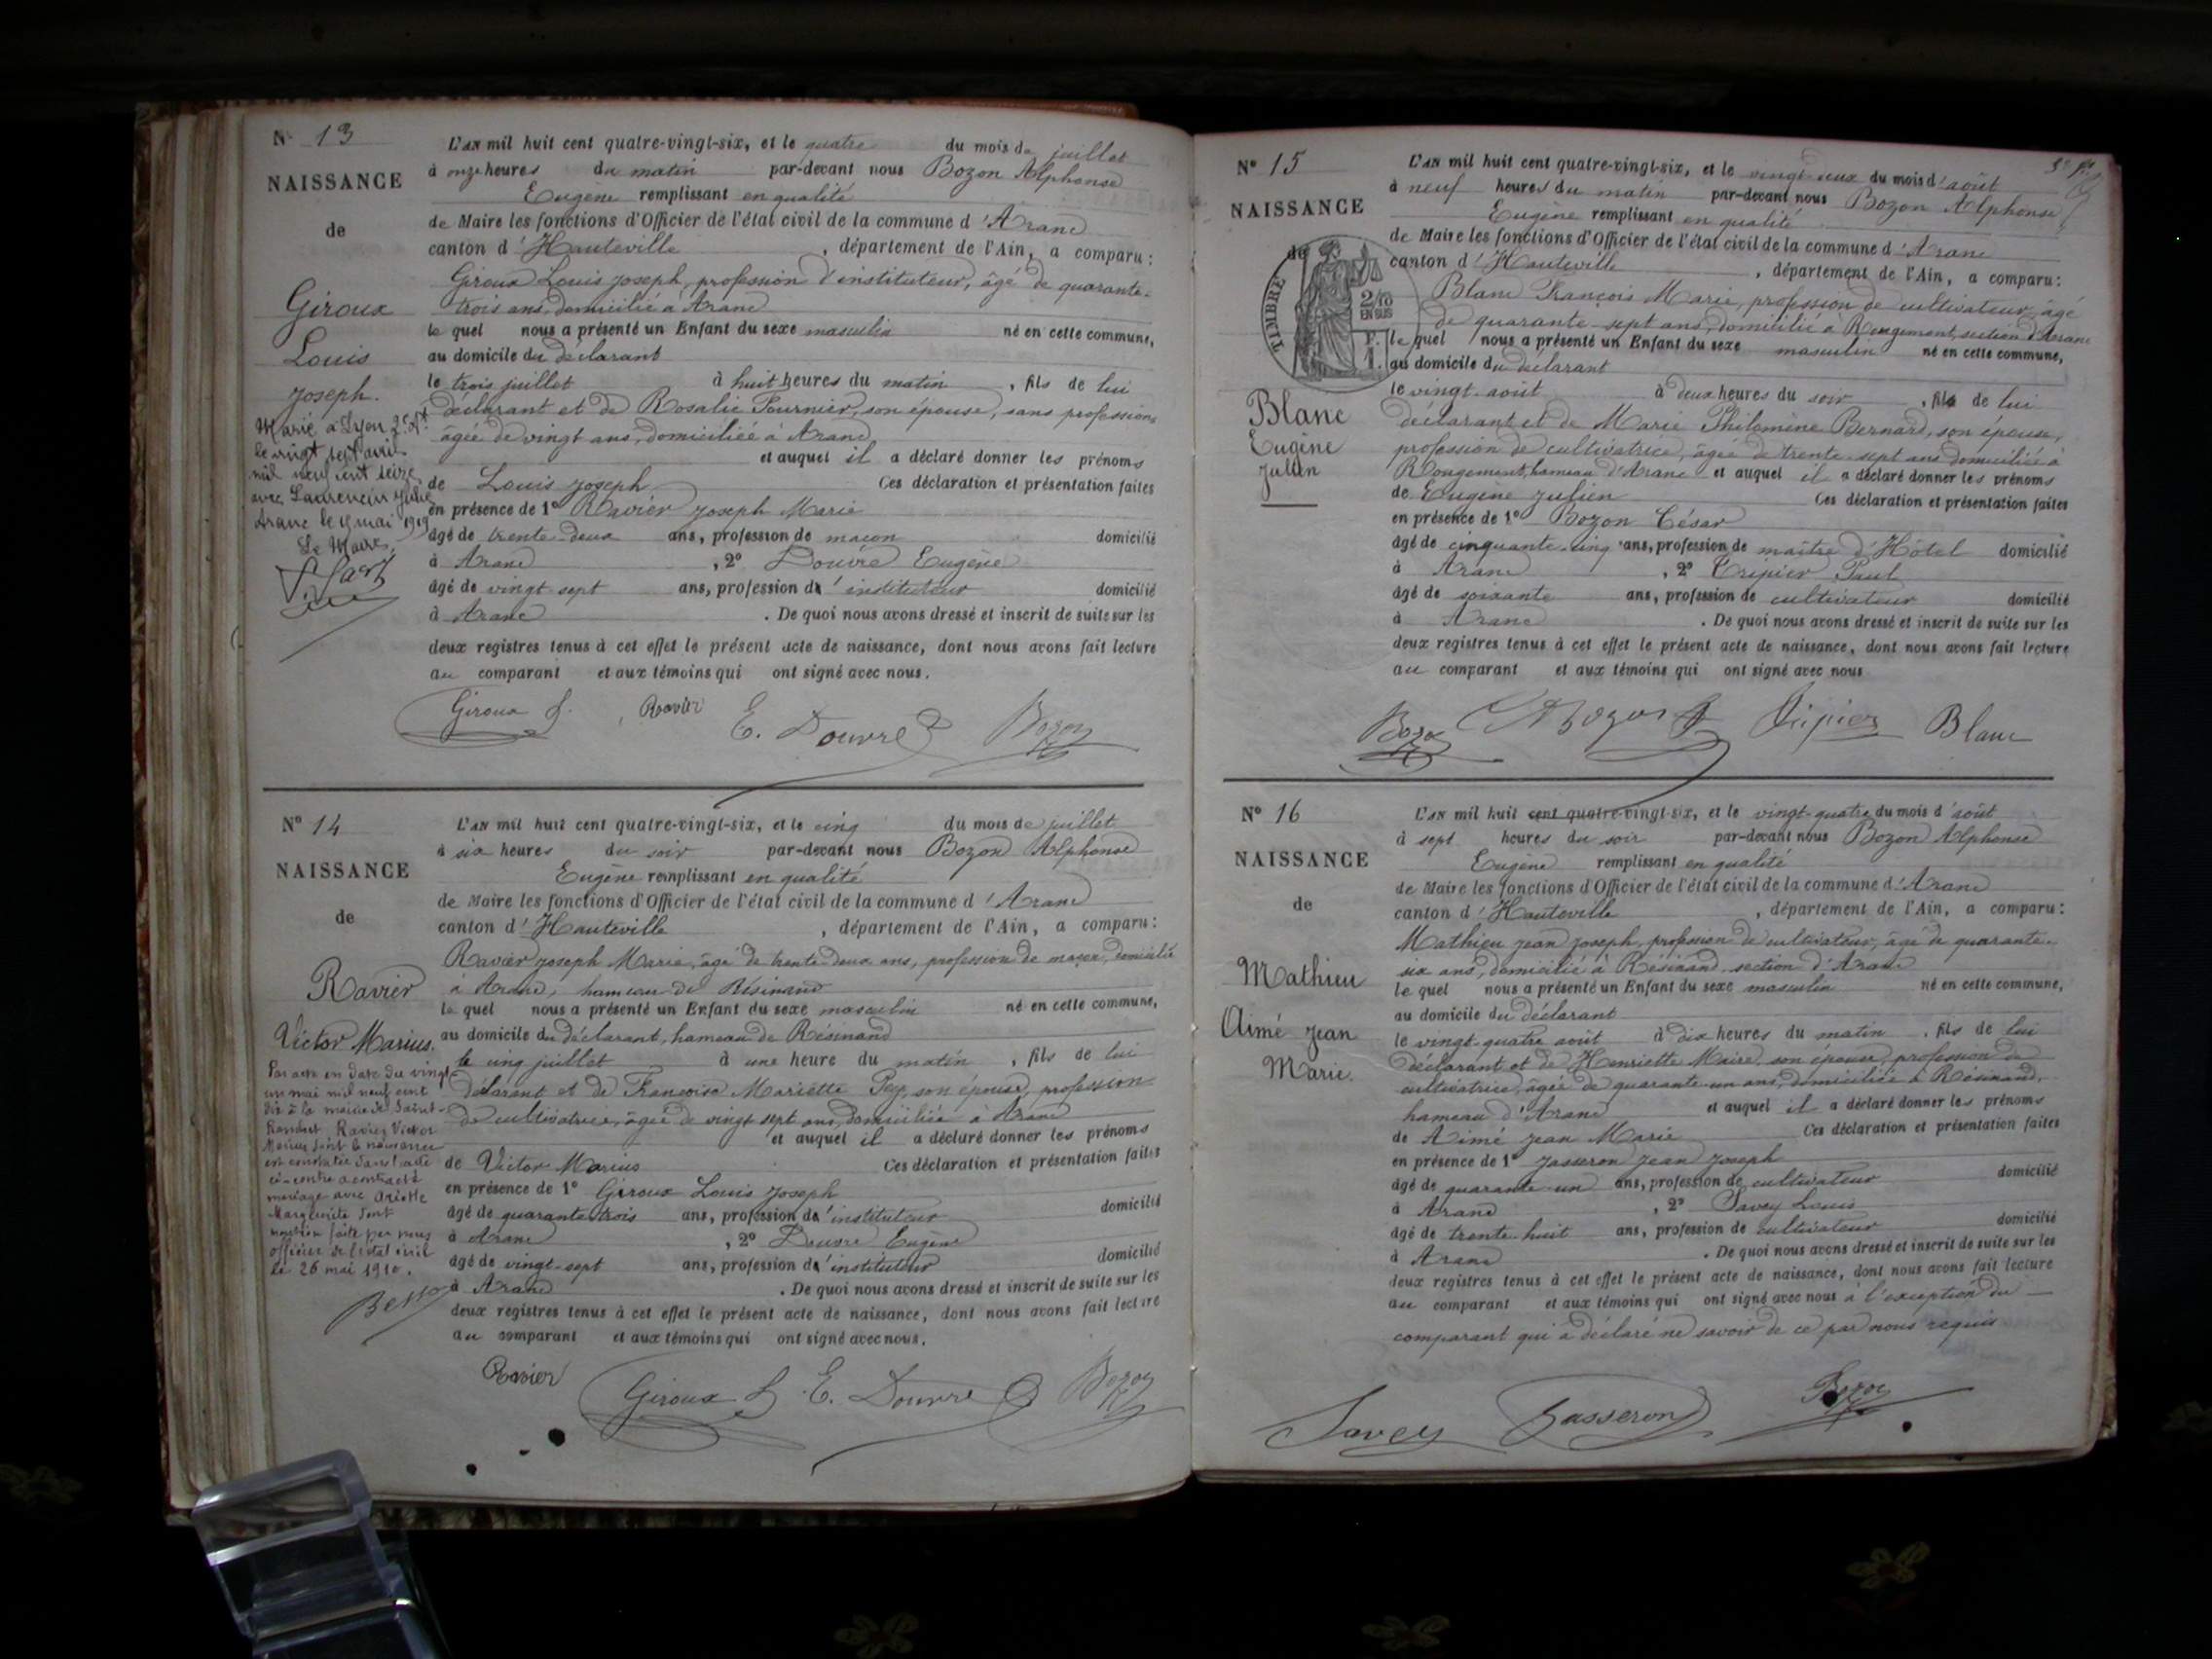 N° 13
NAISSANCE
de
Giroux
Louis
Joseph.
Marié à Lyon
le vingt sept avril
mil neuf cent seize
avec Julie
Aranc le mai 1919
Le Maire,
L'AN mil huit cent quatre-vingt-six, et le quatre du mois de juillet
à onze heures du matin par-devant nous Bozon Alphonse
Eugène remplissant en qualité
de Maire les fonctions d'Officier de l'état civil de la commune d'Aranc
canton d'Hauteville, département de l'Ain, a comparu:
Giroux Louis Joseph, profession d'instituteur, âgé de quarante-
trois ans, domicilié à Aranc
le quel nous a présenté un Enfant du sexe masculin né en cette commune,
au domicile du déclarant
le trois juillet à huit heures du matin, fils de lui
déclarant et de Rosalie Fournier, son épouse, sans profession
âgée de vingt ans, domiciliée à Aranc
et auquel il a déclaré donner les prénoms
de Louis Joseph Ces déclaration et présentation faites
en présence de 1° Ravier Joseph Marie
âgé de trente-deux ans, profession de maçon domicilié
à Aranc, 2° Douvre Eugène
âgé de vingt sept ans, profession d'instituteur domicilié
à Aranc. De quoi nous avons dressé et inscrit de suite sur les
deux registres tenus à cet effet le présent acte de naissance, dont nous avons fait lecture
au comparant et aux témoins qui ont signé avec nous.
Giroux L. Ravier E. Douvre Bozon
N° 14
NAISSANCE
de
Ravier
Victor Marius.
Par acte en date du vingt
un mai mil neuf cent
dix à la mairie de Saint-
Rambert Ravier Victor
Marius dont la naissance
est constatée dans l'acte
ci-contre a contracté
mariage avec
Marguerite dont
mention faite par nous
officier de l'état civil
le 26 mai 1910.
L'AN mil huit cent quatre-vingt-six, et le cinq du mois de juillet
à six heures du soir par-devant nous Bozon Alphonse
Eugène remplissant en qualité
de Maire les fonctions d'Officier de l'état civil de la commune d'Aranc
canton d'Hauteville, département de l'Ain, a comparu:
Ravier Joseph Marie, âgé de trente-deux ans, profession de maçon, domicilié
à Aranc, hameau de Résinand
le quel nous a présenté un Enfant du sexe masculin né en cette commune,
au domicile du déclarant, hameau de Résinand
le cinq juillet à une heure du matin, fils de lui
déclarant et de Françoise Mariette Pey, son épouse, profession
de cultivatrice, âgée de vingt sept ans, domiciliée à Aranc
et auquel il a déclaré donner les prénoms
de Victor Marius Ces déclaration et présentation faites
en présence de 1° Giroux Louis Joseph
âgé de quarante trois ans, profession d'instituteur domicilié
à Aranc, 2° Douvre Eugène
âgé de vingt-sept ans, profession d'instituteur domicilié
à Aranc. De quoi nous avons dressé et inscrit de suite sur les
deux registres tenus à cet effet le présent acte de naissance, dont nous avons fait lecture
au comparant et aux témoins qui ont signé avec nous.
Ravier Giroux L E. Douvre Bozon
N° 15
NAISSANCE
de
TIMBRE
2/10
EN SUS
Blanc
Eugène
Julien
L'AN mil huit cent quatre-vingt-six, et le vingt-deux du mois d'août
à neuf heures du matin par-devant nous Bozon Alphonse
Eugène remplissant en qualité
de Maire les fonctions d'Officier de l'état civil de la commune d'Aranc
canton d'Hauteville, département de l'Ain, a comparu:
Blanc François Marie, profession de cultivateur, âgé
de quarante-sept ans, domicilié à Rougemont, section d'Aranc
le quel nous a présenté un Enfant du sexe masculin né en cette commune,
au domicile du déclarant
le vingt août à deux heures du soir, fils de lui
déclarant et de Marie Philomène Bernard, son épouse,
profession de cultivatrice, âgée de trente-sept ans domiciliée à
Rougement, hameau d'Aranc et auquel il a déclaré donner les prénoms
de Eugène Julien Ces déclaration et présentation faites
en présence de 1° Bozon César
âgé de cinquante-cinq ans, profession de maître d'Hôtel domicilié
à Aranc, 2° Tripier Paul
âgé de soixante ans, profession de cultivateur domicilié
à Aranc. De quoi nous avons dressé et inscrit de suite sur les
deux registres tenus à cet effet le présent acte de naissance, dont nous avons fait lecture
au comparant et aux témoins qui ont signé avec nous
Bozon Bozon Tripier Blanc
N° 16
NAISSANCE
de
Mathieu
Aimé Jean
Marie.
L'AN mil huit cent quatre-vingt-six, et le vingt-quatre du mois d'août
à sept heures du soir par-devant nous Bozon Alphonse
Eugène remplissant en qualité
de Maire les fonctions d'Officier de l'état civil de la commune d'Aranc
canton d'Hauteville, département de l'Ain, a comparu:
Mathieu Jean Joseph, profession de cultivateur, âgé de quarante-
six ans, domicilié à Résinand, section d'Aranc
le quel nous a présenté un Enfant du sexe masculin né en cette commune,
au domicile du déclarant
le vingt-quatre août à dix heures du matin, fils de lui
déclarant et de Henriette Maire, son épouse, profession de
cultivatrice, âgée de quarante-un ans, domiciliée à Résinand,
hameau d'Aranc et auquel il a déclaré donner les prénoms
de Aimé Jean Marie Ces déclaration et présentation faites
en présence de 1° Jasseron Jean Joseph
âgé de quarante-un ans, profession de cultivateur domicilié
à Aranc, 2° Savey Louis
âgé de trente-huit ans, profession de cultivateur domicilié
à Aranc. De quoi nous avons dressé et inscrit de suite sur les
deux registres tenus à cet effet le présent acte de naissance, dont nous avons fait lecture
au comparant et aux témoins qui ont signé avec nous à l'exception du
comparant qui a déclaré ne savoir de ce par nous requis
Savey Jasseron Bozon